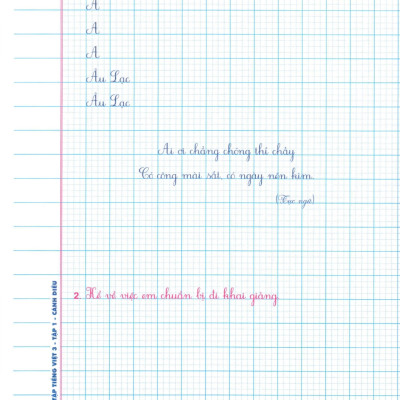 Â
Â
Â
Âu Lạc
Âu Lạc
Ai ơi chẳng chóng thì chầy
Có công mài sắt, có ngày nên kim.
(Tục ngữ)
2. Kể về việc em chuẩn bị đi khai giảng.
TẬP TIẾNG VIỆT 3 - TẬP 1 - CÁNH DIỀU